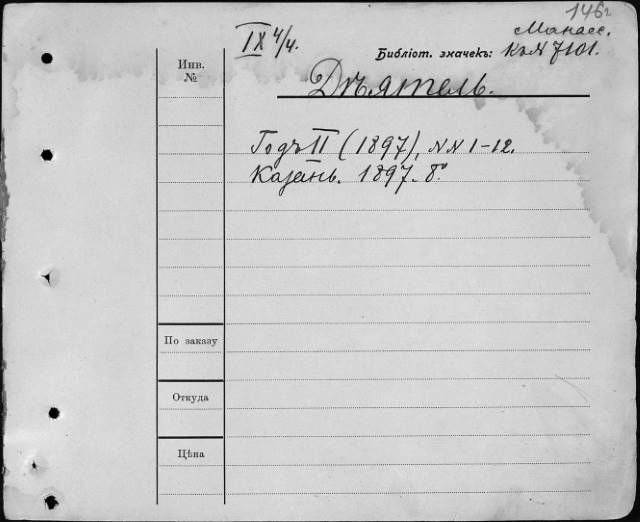 146г
Манас.
IX 4/4.
Библіот. значекъ: К.м N 7101.
Дѣятель.
Инв.
№
Годъ II (1897), NN 1-12.
Казань. 1897. 8º
По заказу
Откуда
Цѣна